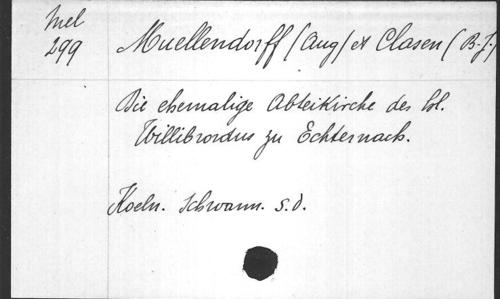 Mel
299
Muellendorff (Aug) et Clasen (B.J.)
Die ehemalige Abteikirche des hl.
Willibrordus zu Echternach.
Koeln. Schwann. s.d.